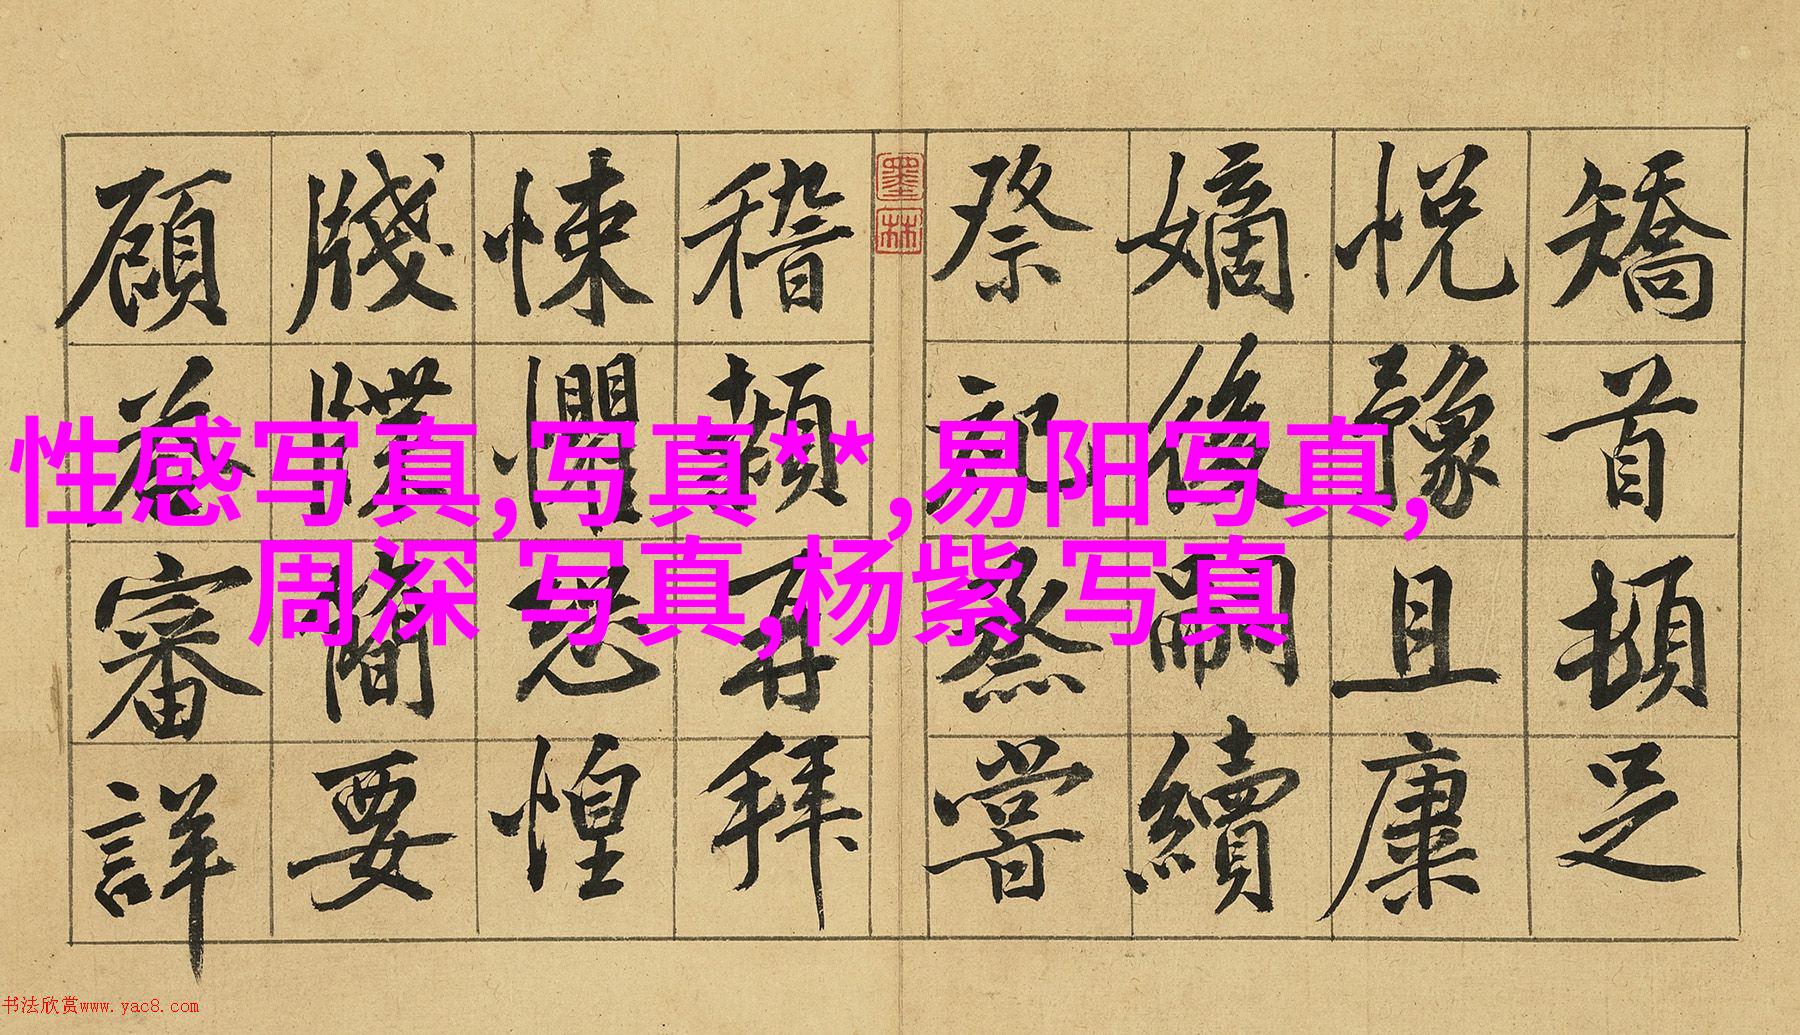 矯首頓足
悅豫且康
嫡後嗣續
祭祀烝嘗
墨林
稽顙再拜
悚懼恐惶
牋牒簡要
顧答審詳
性感写真,写真** ,易阳写真,
周深 写真,杨紫 写真
书法欣赏www.yac8.com